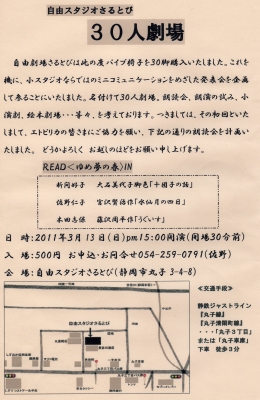 自由スタジオさるとび
30人劇場
自由劇場さるとびは此の度パイプ椅子を30脚購入いたしました。これを
機に、小スタジオならではのミニコミュニケーションをめざした発表会を企画
して参ることにいたしました。名付けて30人劇場。朗読会、朗読の試み、小
演劇、絵本劇場・・・等々、を考えております。つきましては、その初回といた
しまして、エトピリカの皆さまにご協力を願い、下記の通りの朗読会を計画い
たしました。どうかよろしくお越しのほどをお願い申し上げます。
READ<ゆめ夢の春>IN
新間好子 大石美代子脚色「十団子の話」
佐野仁子 宮沢賢治作「水仙月の四日」
本田志保 藤沢周平作「うぐいす」
日 時:2011年3月13日(日)pm15:00開演(開場30分前)
入 場:500円 お申込・お問合せ054-259-0791(佐野)
会 場:自由スタジオさるとび(静岡市丸子3-4-8)
≪交通手段≫
静鉄ジャストライン
『丸子線』
『丸子清閑町線』
・・・「丸子3丁目」
または「丸子車庫」
下車 徒歩3分
自由スタジオさるとび